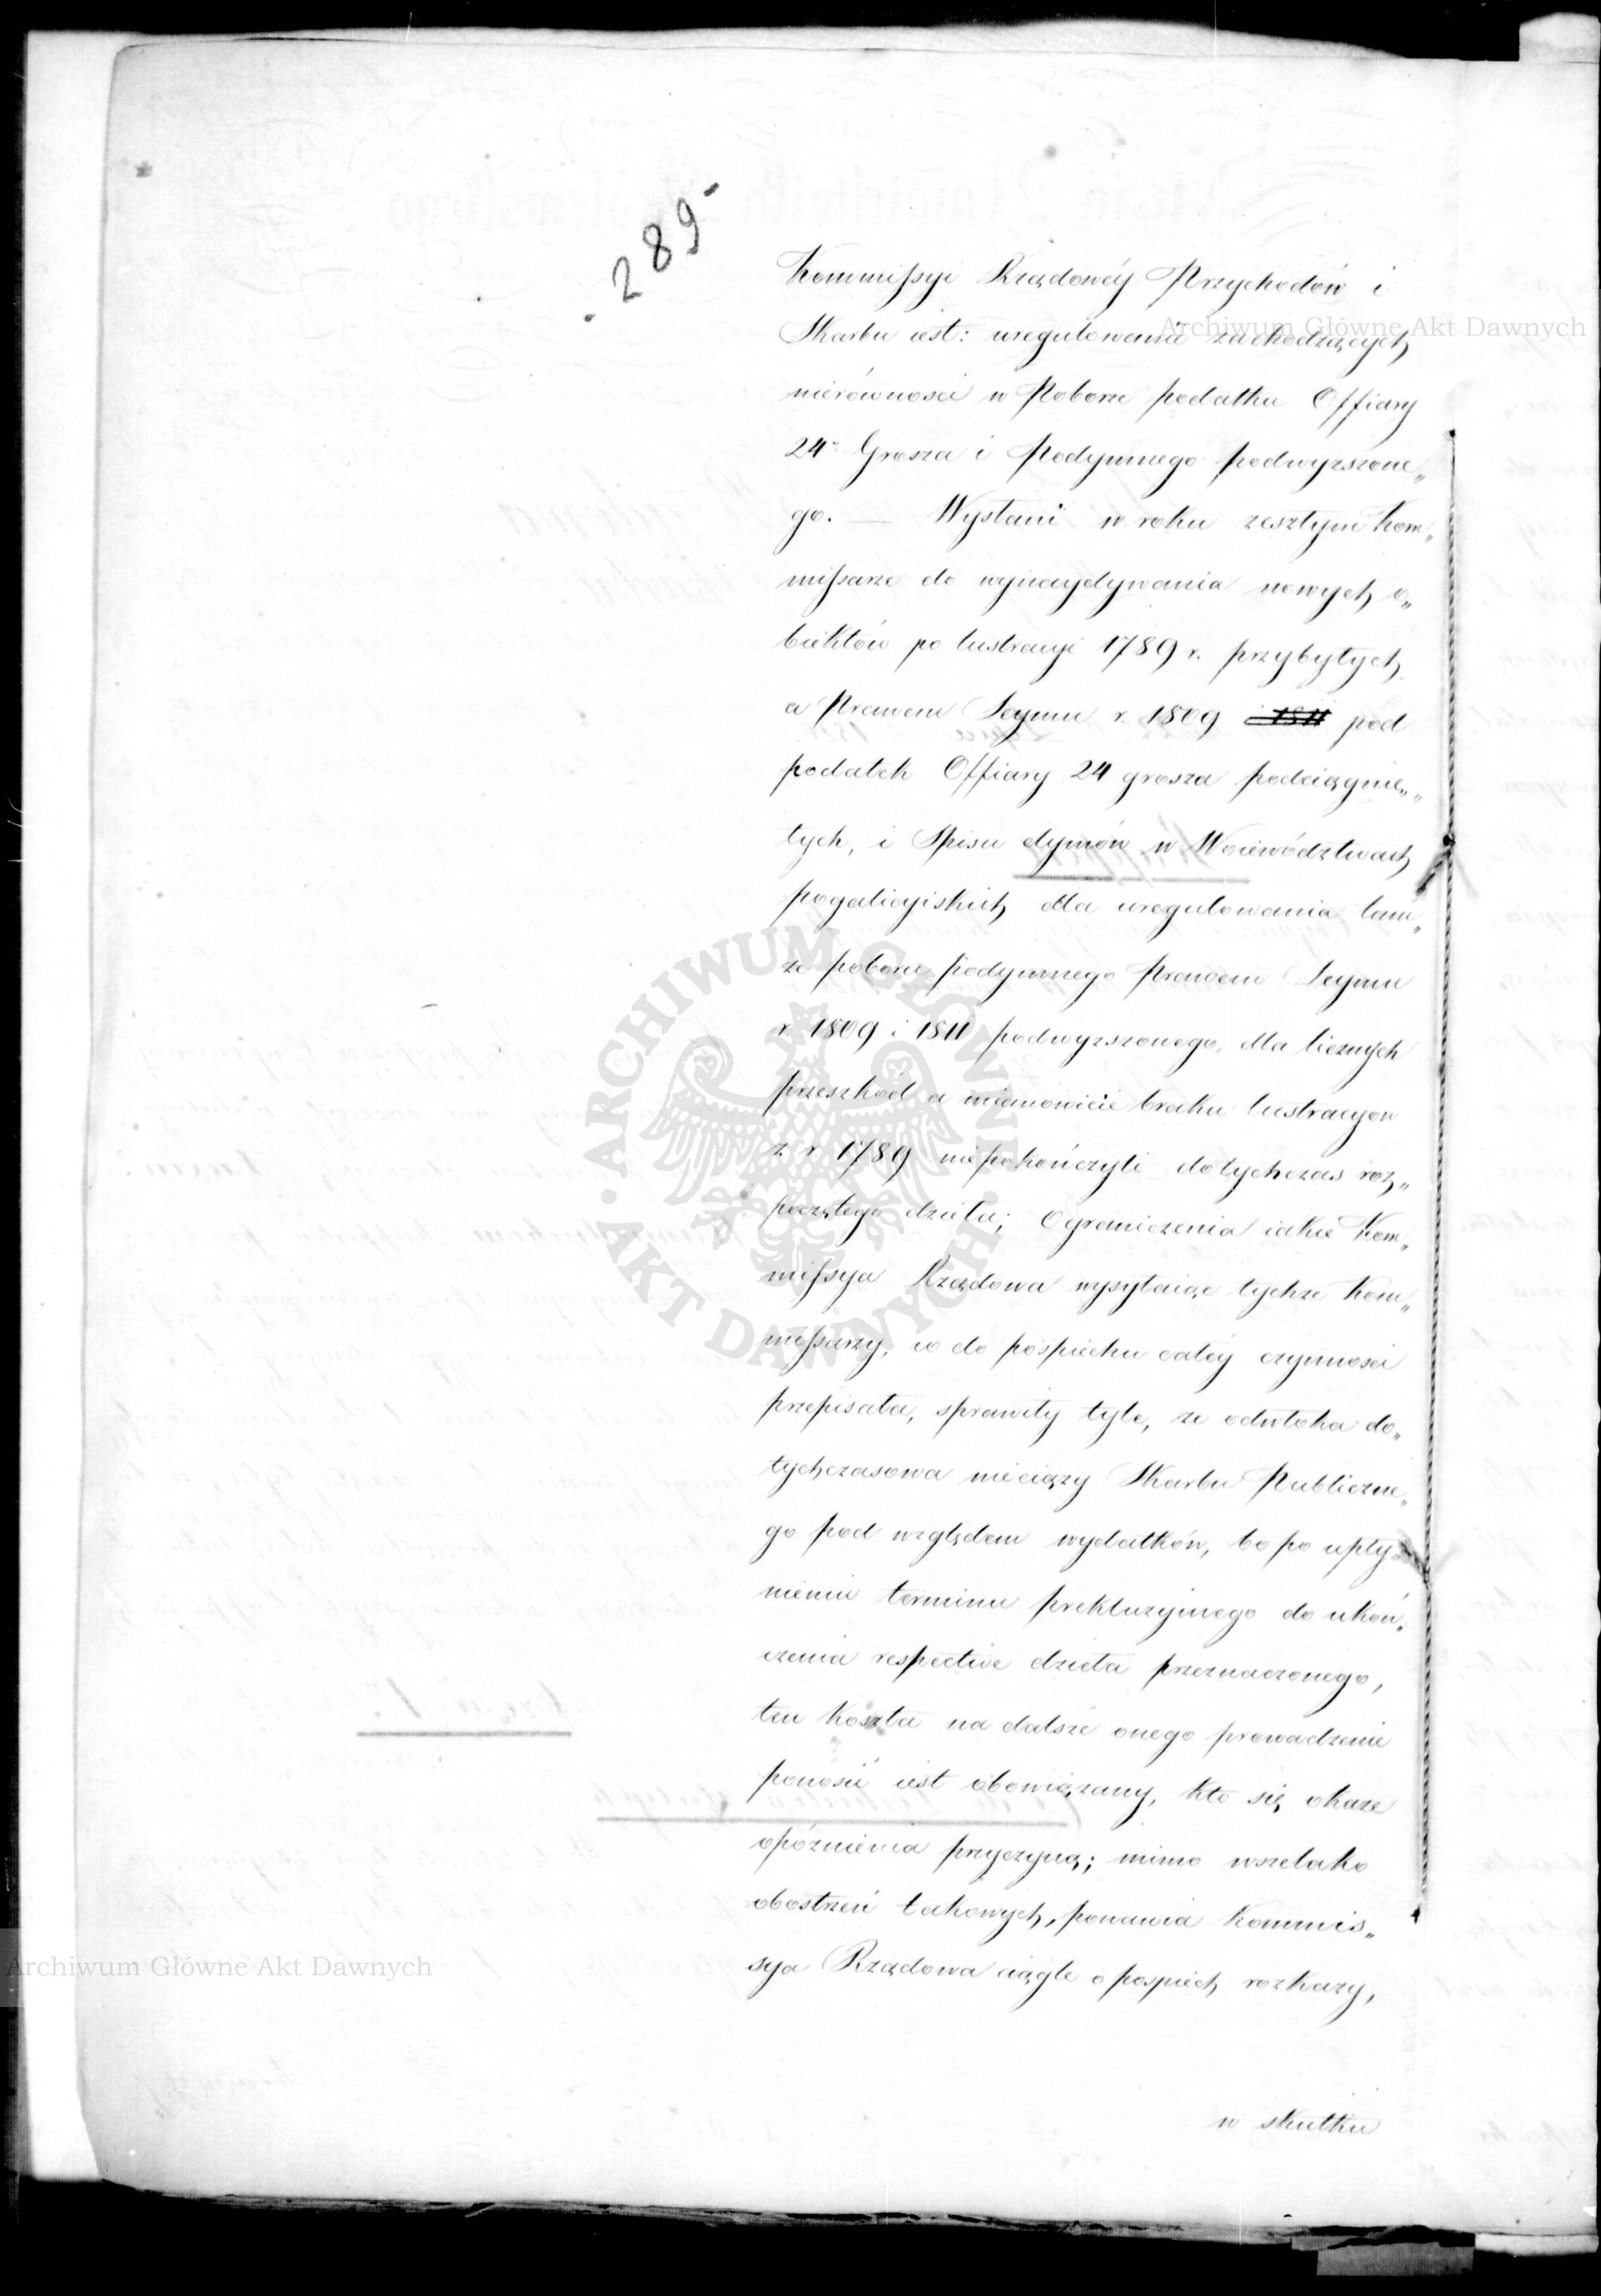 . 289 -
Kommissyi Rządowéy Przychodów i
Skarbu iest: uregulowanie zachodzących
nierówności w Poborze podatku Offiary
24° Grosza i Podymnego podwyższone„
go. — Wysłani w roku zeszłym Kom„
missarze do wynaydywania nowych o„
biektów po lustracyi 1789 r. przybyłych
a Prawem Seymu r. 1809 i 1811 pod
podatek Offiary 24 grosza podciągnię„
tych, i Spisu dymów w Woiewództwach
pogalicyiskich dla uregulowania tam„
że poboru podymnego Prawem Seymu
r. 1809 i 1811 podwyższonego, dla licznych
przeszkód a mianowicie braku lustracyow
z r. 1789 niepokończyli dotychczas roz„
poczętego dzieła; Ograniczenia iakie Kom„
missya Rządowa wysyłaiąc tychże Kom„
missarzy, co do pośpiechu całéy czynności
przepisała, sprawiły tyle, że odwłoka do„
tychczasowa nieciąży Skarbu Publiczne„
go pod względem wydatków, bo po upły„
nieniu terminu prekluzyinego do ukoń„
czenia respective dzieła przeznaczonego,
ten koszta na dalsze onego prowadzenie
ponosić iest obowiązany, kto się okaże
opóźnienia przyczyną; mimo wszelako
obostrzeń takowych, ponawia Kommis„
sya Rządowa ciągle o pospiech rozkazy,
w skutku
Archiwum Główne Akt Dawnych
ARCHIWUM GŁÓWNE · AKT DAWNYCH ·
Archiwum Główne Akt Dawnych